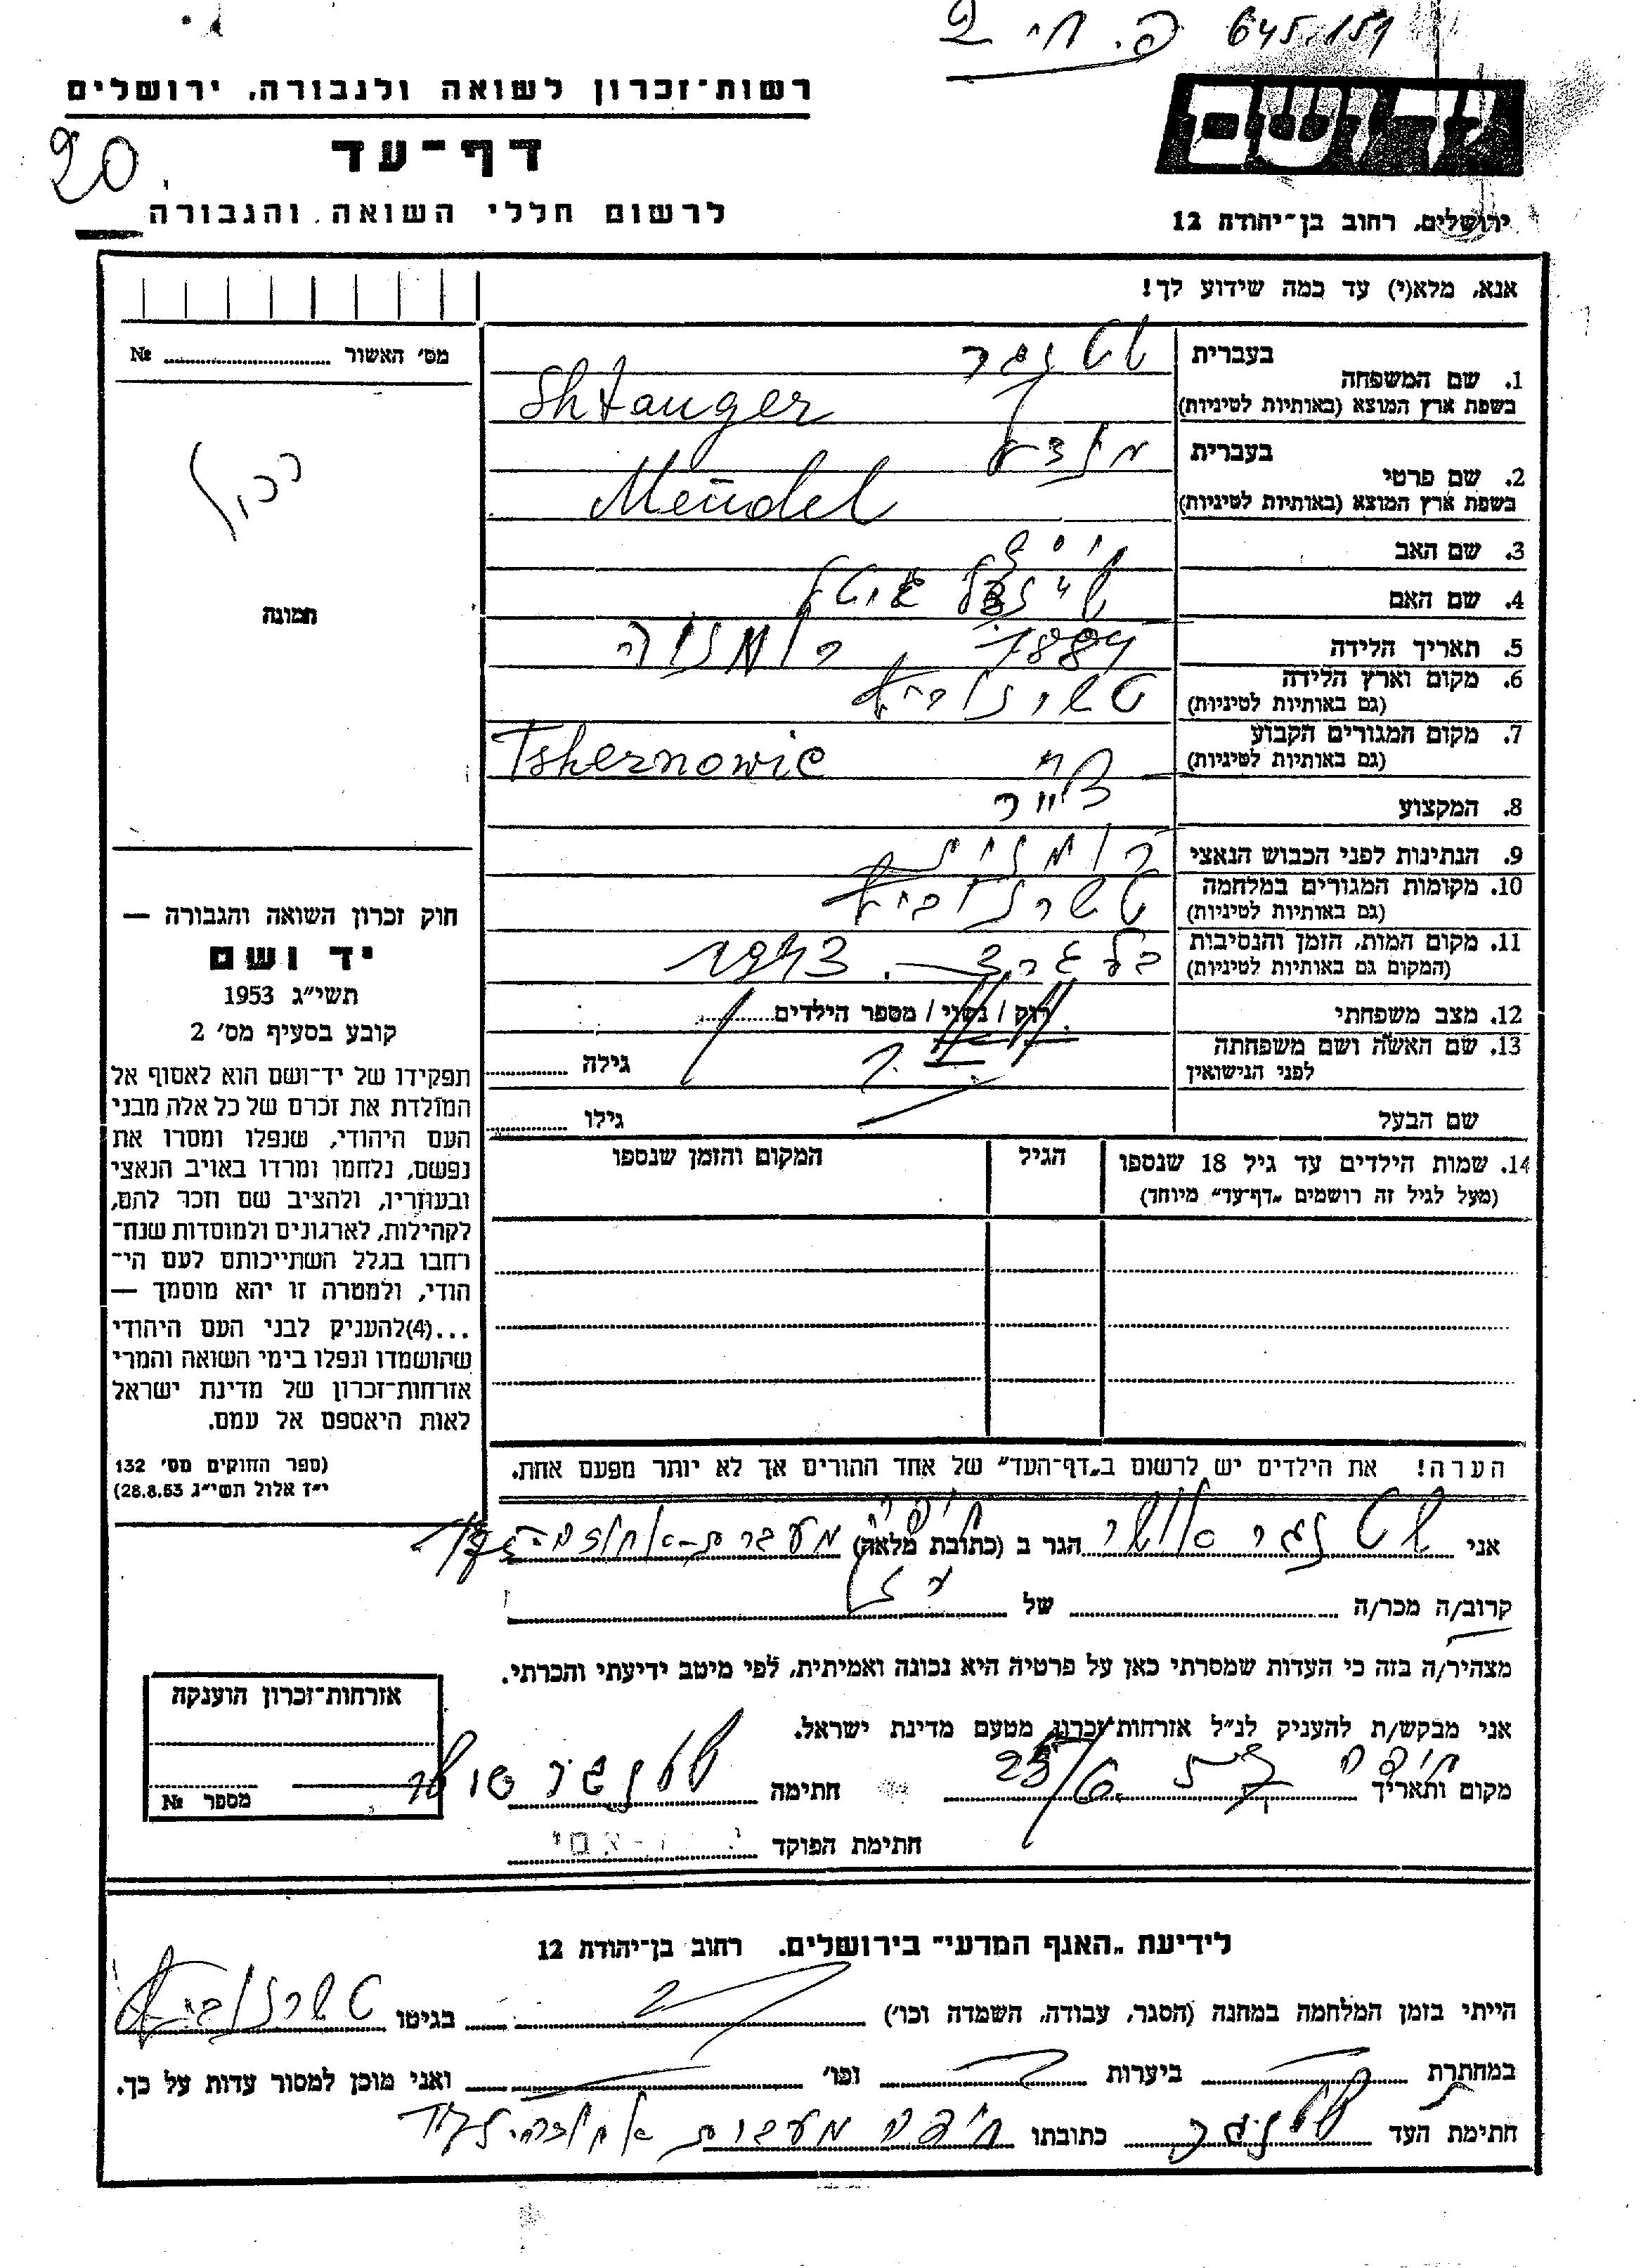 645/151
רשות־זכרון לשואה ולגבורה, ירושלים
יד ושם
דף־עד
20
לרשום חללי השואה והגבורה
ירושלים, רחוב בן־יהודה 12
אנא, מלא(י) עד כמה שידוע לך!
מס' האשור № 
תמונה
1. שם המשפחה בעברית שטנגר
בשפת ארץ המוצא (באותיות לטיניות) Shtanger
2. שם פרטי בעברית מנדל
בשפת ארץ המוצא (באותיות לטיניות) Mendel
3. שם האב
4. שם האם
5. תאריך הלידה 1884 רומניה
6. מקום וארץ הלידה
(גם באותיות לטיניות)
7. מקום המגורים הקבוע Tshernowic
(גם באותיות לטיניות)
8. המקצוע
9. הנתינות לפני הכבוש הנאצי רומנית
10. מקומות המגורים במלחמה
(גם באותיות לטיניות)
11. מקום המות, הזמן והנסיבות 1943
(המקום גם באותיות לטיניות)
12. מצב משפחתי רוק / נשוי / מספר הילדים
13. שם האשה ושם משפחתה גילה
לפני הנישואין
שם הבעל גילו
14. שמות הילדים עד גיל 18 שנספו הגיל המקום והזמן שנספו
(מעל לגיל זה רושמים „דף־עד" מיוחד)
חוק זכרון השואה והגבורה —
יד ושם
תשי"ג 1953
קובע בסעיף מס' 2
תפקידו של יד־ושם הוא לאסוף אל
המולדת את זכרם של כל אלה מבני
העם היהודי, שנפלו ומסרו את
נפשם, נלחמו ומרדו באויב הנאצי
ובעוזריו, ולהציב שם וזכר להם,
לקהילות, לארגונים ולמוסדות שנח־
רבו בגלל השתייכותם לעם הי־
הודי, ולמטרה זו יהא מוסמך —
...(4)להעניק לבני העם היהודי
שהושמדו ונפלו בימי השואה והמרי
אזרחות־זכרון של מדינת ישראל
לאות היאספם אל עמם.
(ספר החוקים מס' 132
י"ז אלול תשי"ג 28.8.53)
הערה! את הילדים יש לרשום ב„דף־העד" של אחד ההורים אך לא יותר מפעם אחת.
אני שטנגר אושר הגר ב (כתובת מלאה) חיפה מעברת
קרוב/ה מכר/ה של
מצהיר/ה בזה כי העדות שמסרתי כאן על פרטיה היא נכונה ואמיתית, לפי מיטב ידיעתי והכרתי.
אני מבקש/ת להעניק לנ"ל אזרחות־זכרון מטעם מדינת ישראל.
מקום ותאריך חיפה חתימה
חתימת הפוקד
אזרחות־זכרון הוענקה
מספר №
לידיעת „האגף המדעי" בירושלים, רחוב בן־יהודה 12
הייתי בזמן המלחמה במחנה (הסגר, עבודה, השמדה וכו') בגיטו
במחתרת ביערות וכו' ואני מוכן למסור עדות על כך.
חתימת העד שטנגר כתובתו חיפה מעברת